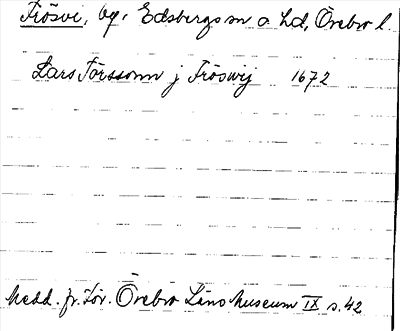 Frösvi, by, Edsbergs sn o. hd, Örebro l.
Lars Törssonn j Frösvij 1672
Medd. fr. För. Örebro Läns Museum IX s. 42